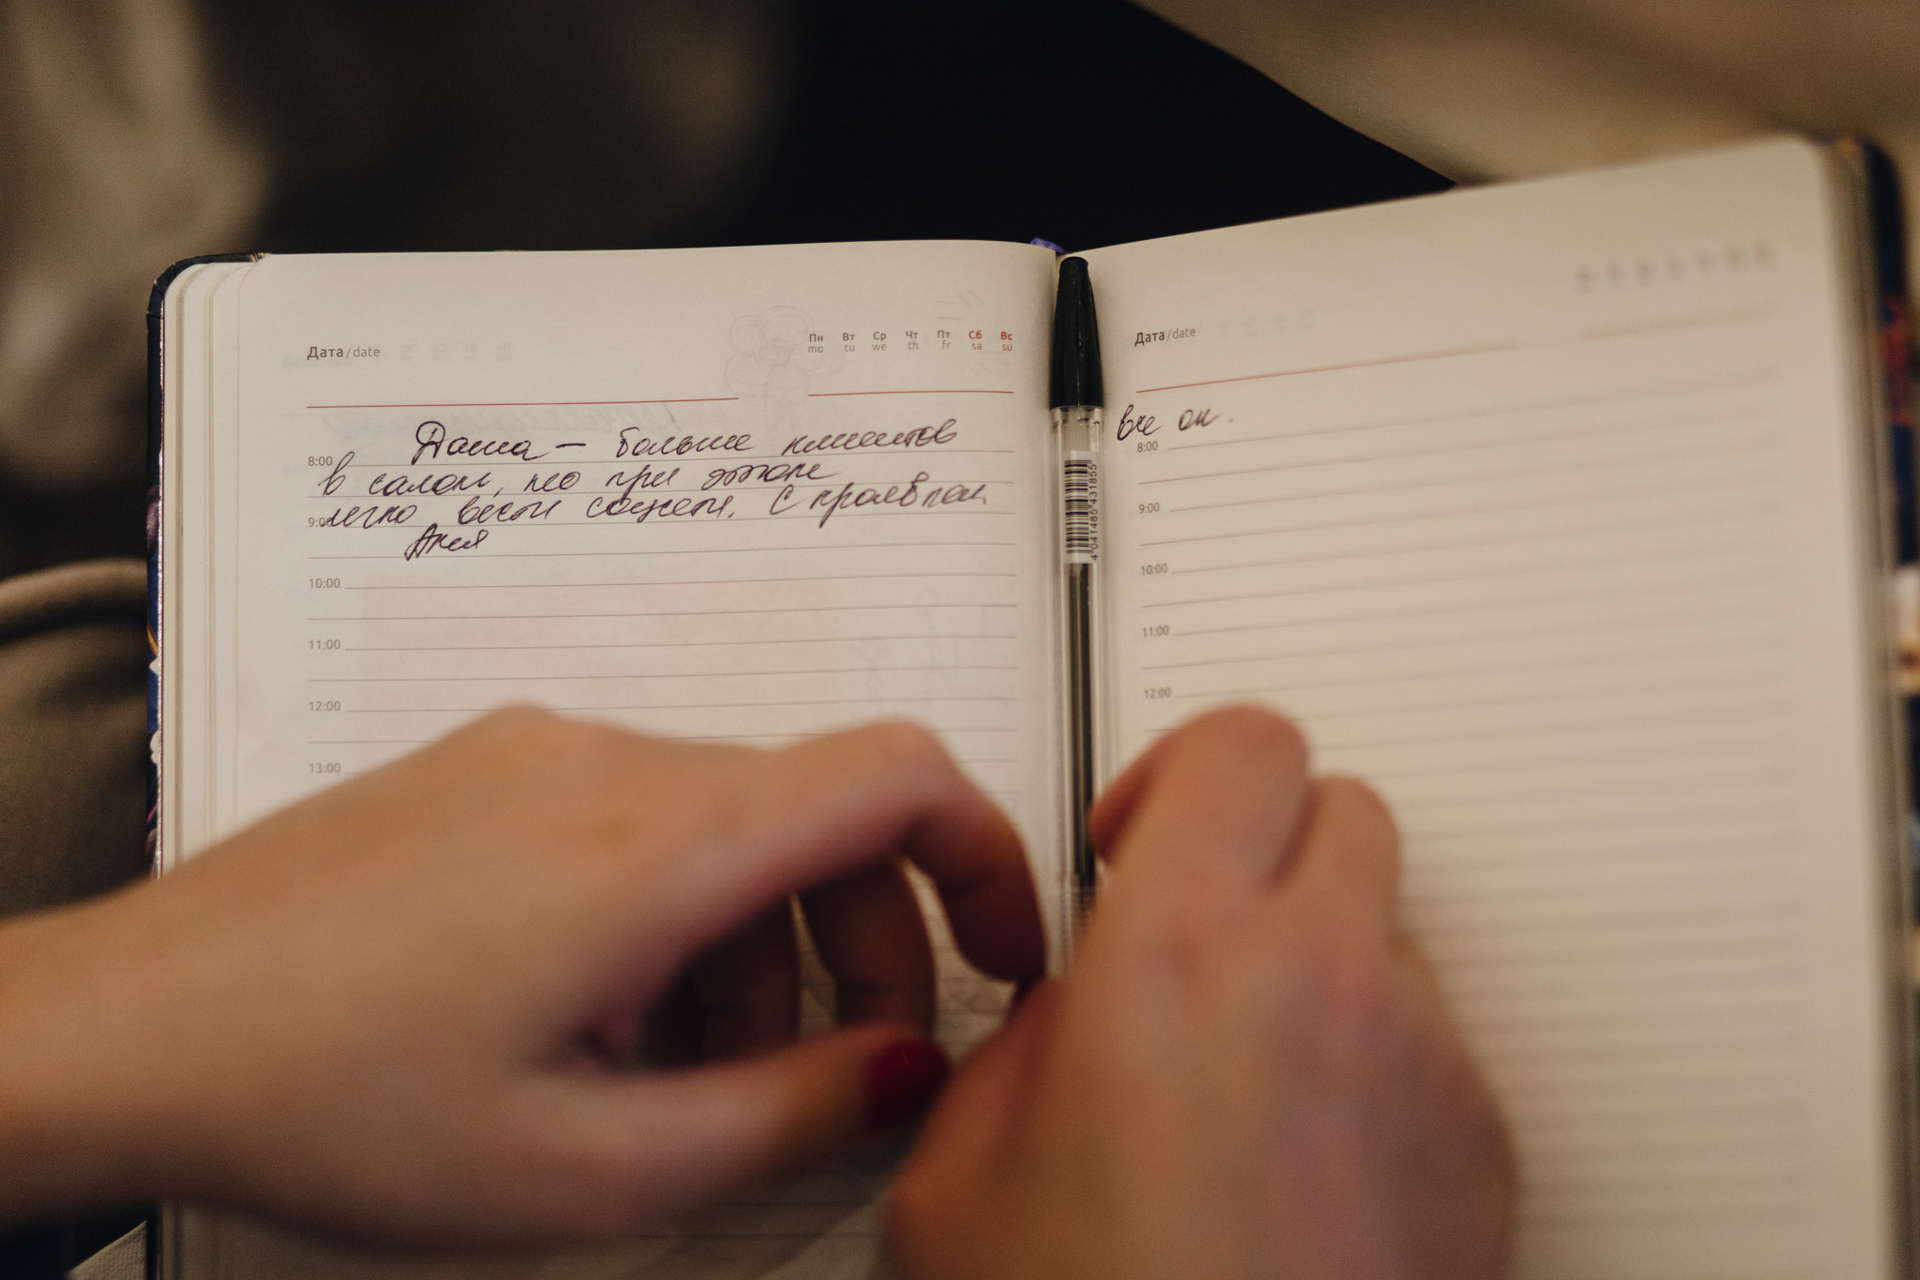 Дата/date
Пн Вт Ср Чт Пт Сб Вс
mo tu we th fr sa su
Даша — больше клиентов
8:00
в салон, но при этом
9:00
легко вести соцсети. С проявлен
Аня
10:00
11:00
12:00
13:00
4 041485 431855
Дата/date
все ок.
8:00
9:00
10:00
11:00
12:00